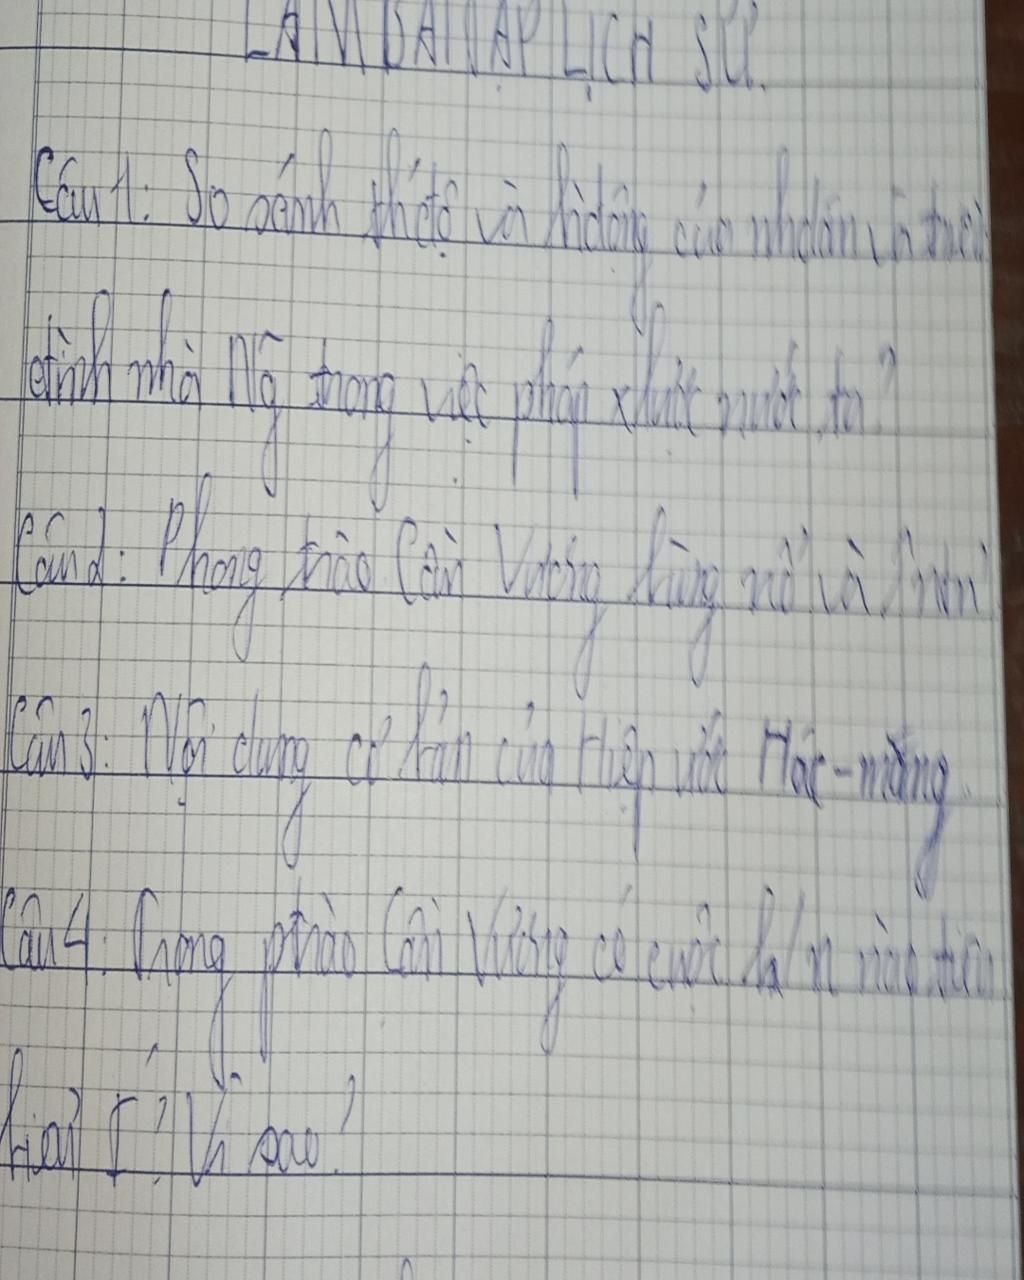 LÀM BÀI TẬP LỊCH SỬ.
Câu 1: So sánh thđộ và hđộng của nhdân và triều
đình nhà Ng̃ trong việc pháp xlược nước ta?
Câu 2: Phong trào Cần Vương bùng nổ và
Câu 3: Nội dung cơ bản của Hiệp ước Hác-măng
Câu 4: Trong ptrào Cần Vương có cuộc k/n nào tiêu
biểu I? Vì sao?